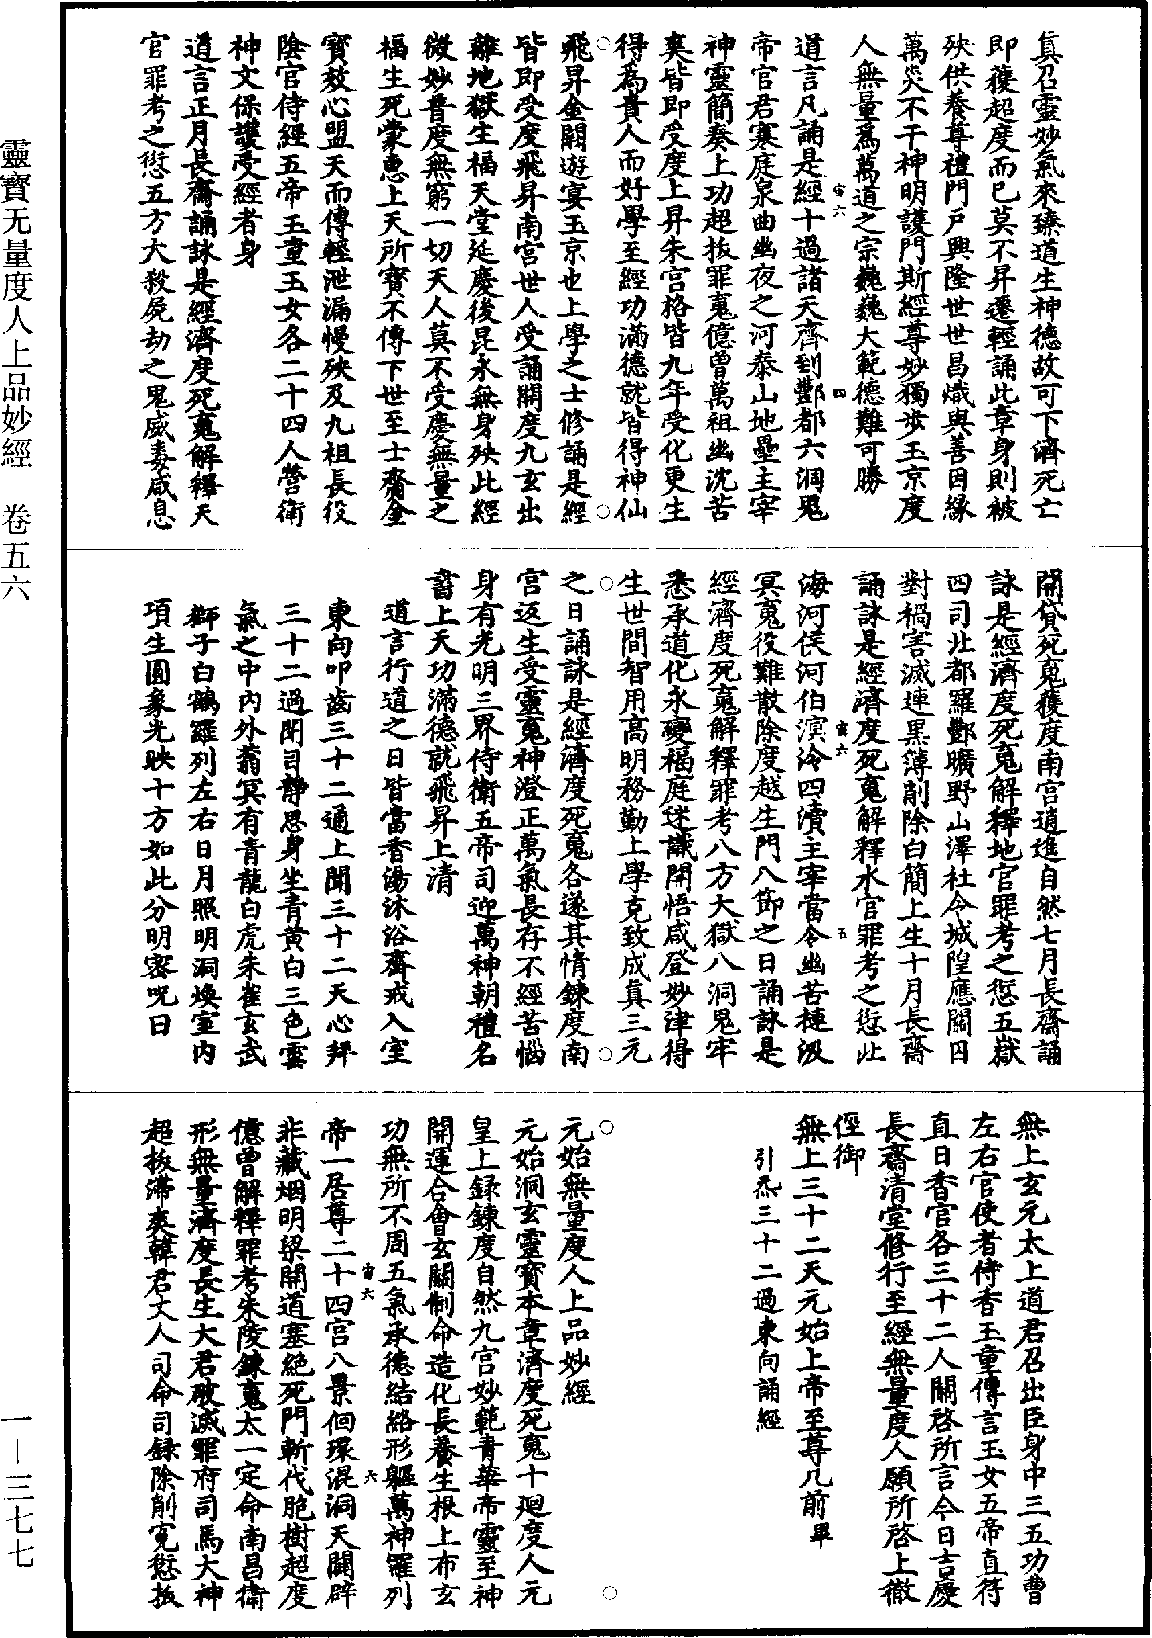 靈寶无量度人上品妙經　卷五六
一—三七七
真召靈妙氣來臻道生神德故可下濟死亡
即獲超度而已莫不昇遷輕誦此章身則被
殃供養尊禮門戶興隆世世昌熾與善因緣
萬災不干神明護門斯經尊妙獨步玉京度
人無量爲萬道之宗巍巍大範德難可勝
道言凡誦是經十過諸天齊到酆都六洞鬼
宙六
四
帝官君寒庭泉曲幽夜之河泰山地壘主宰
神靈簡奏上功超拔罪䰟億曾萬祖幽沈苦
爽皆即受度上昇朱宮格皆九年受化更生
得為貴人而好學至經功滿德就皆得神仙
飛昇金闕遊宴玉京也上學之士修誦是經
皆即受度飛昇南宮世人受誦關度九玄出
離地獄生福天堂延慶後昆永無身殃此經
微妙普度無窮一切天人莫不受慶無量之
福生死蒙惠上天所寶不傳下世至士齎金
寶效心盟天而傳輕泄漏慢殃及九祖長役
陰官侍經五帝玉童玉女各二十四人營衛
神文保護受經者身
道言正月長齋誦詠是經濟度死䰟解釋天
官罪考之愆五方大殺屍劫之鬼威毒咸息
開貸死䰟獲度南宮逍遙自然七月長齋誦
詠是經濟度死䰟解釋地官罪考之愆五嶽
四司北都羅酆曠野山澤社令城隍應關因
對禍害滅連黑薄削除白簡上生十月長齋
誦詠是經濟度死䰟解釋水官罪考之愆北
海河侯河伯溟泠四瀆主宰當令幽苦槤汲
宙六
五
冥䰟役難散除度越生門八節之日誦詠是
經濟度死䰟解釋罪考八方大獄八洞鬼牢
悉承道化永變福庭迷識開悟咸登妙津得
生世間智用高明務勤上學克致成真三元
之日誦詠是經濟度死䰟各遂其情鍊度南
宮返生受靈䰟神澄正萬氣長存不經苦惱
身有光明三界侍衛五帝司迎萬神朝禮名
書上天功滿德就飛昇上清
道言行道之日皆當香湯沐浴齋戒入室
東向叩齒三十二通上聞三十二天心拜
三十二過閉目靜思身坐青黃白三色雲
氣之中內外蓊冥有青龍白虎朱雀玄武
獅子白鶴羅列左右日月照明洞煥室內
項生圓象光映十方如此分明密呪曰
無上玄元太上道君召出臣身中三五功曹
左右官使者侍香玉童傳言玉女五帝直符
直日香官各三十二人關啓所言今日吉慶
長齋清堂修行至經無量度人願所啓上徹
俓御
無上三十二天元始上帝至尊几前畢
引炁三十二過東向誦經
元始無量度人上品妙經
元始洞玄靈寶本章濟度死䰟十廻度人元
皇上錄鍊度自然九宮妙範青華帝靈至神
開運合會玄關制命造化長養生根上布玄
功無所不周五氣承德結絡形軀萬神羅列
宙六
六
帝一居尊二十四宮八景佪環混洞天關辟
非藏烟明梁開道塞絶死門斬伐胞樹超度
億曾解釋罪考朱陵鍊䰟太一定命南昌衛
形無量濟度長生大君破滅罪府司馬大神
超拔滯爽韓君丈人司命司錄除削寃愆拔